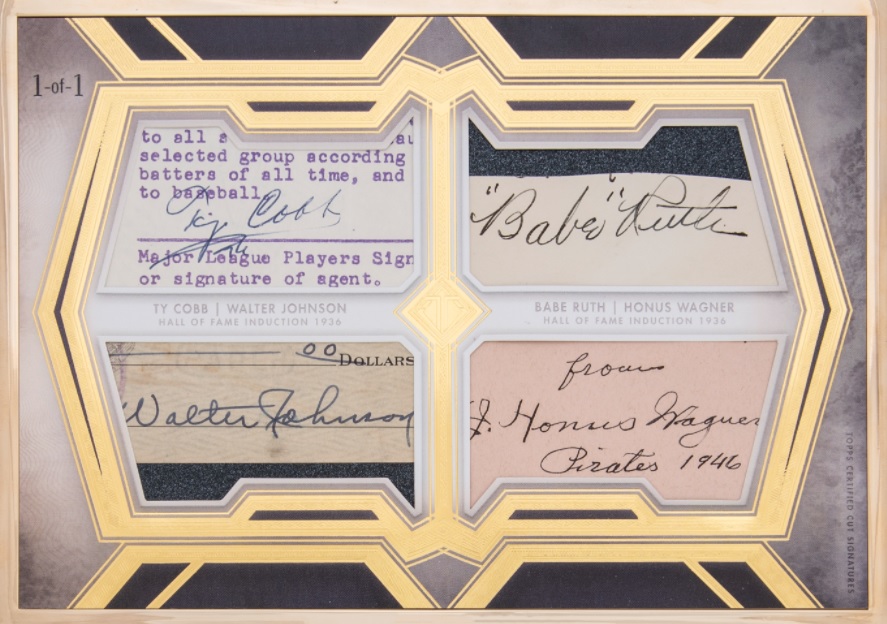 1-of-1
to all a
selected group according
batters of all time, and
to baseball
Ty Cobb
Major League Players Sign
or signature of agent.
"Babe" Ruth
TY COBB | WALTER JOHNSON
HALL OF FAME INDUCTION 1936
BABE RUTH | HONUS WAGNER
HALL OF FAME INDUCTION 1936
00 DOLLARS
Walter Johnson
from
J. Honus Wagner
Pirates 1946
TOPPS CERTIFIED CUT SIGNATURES